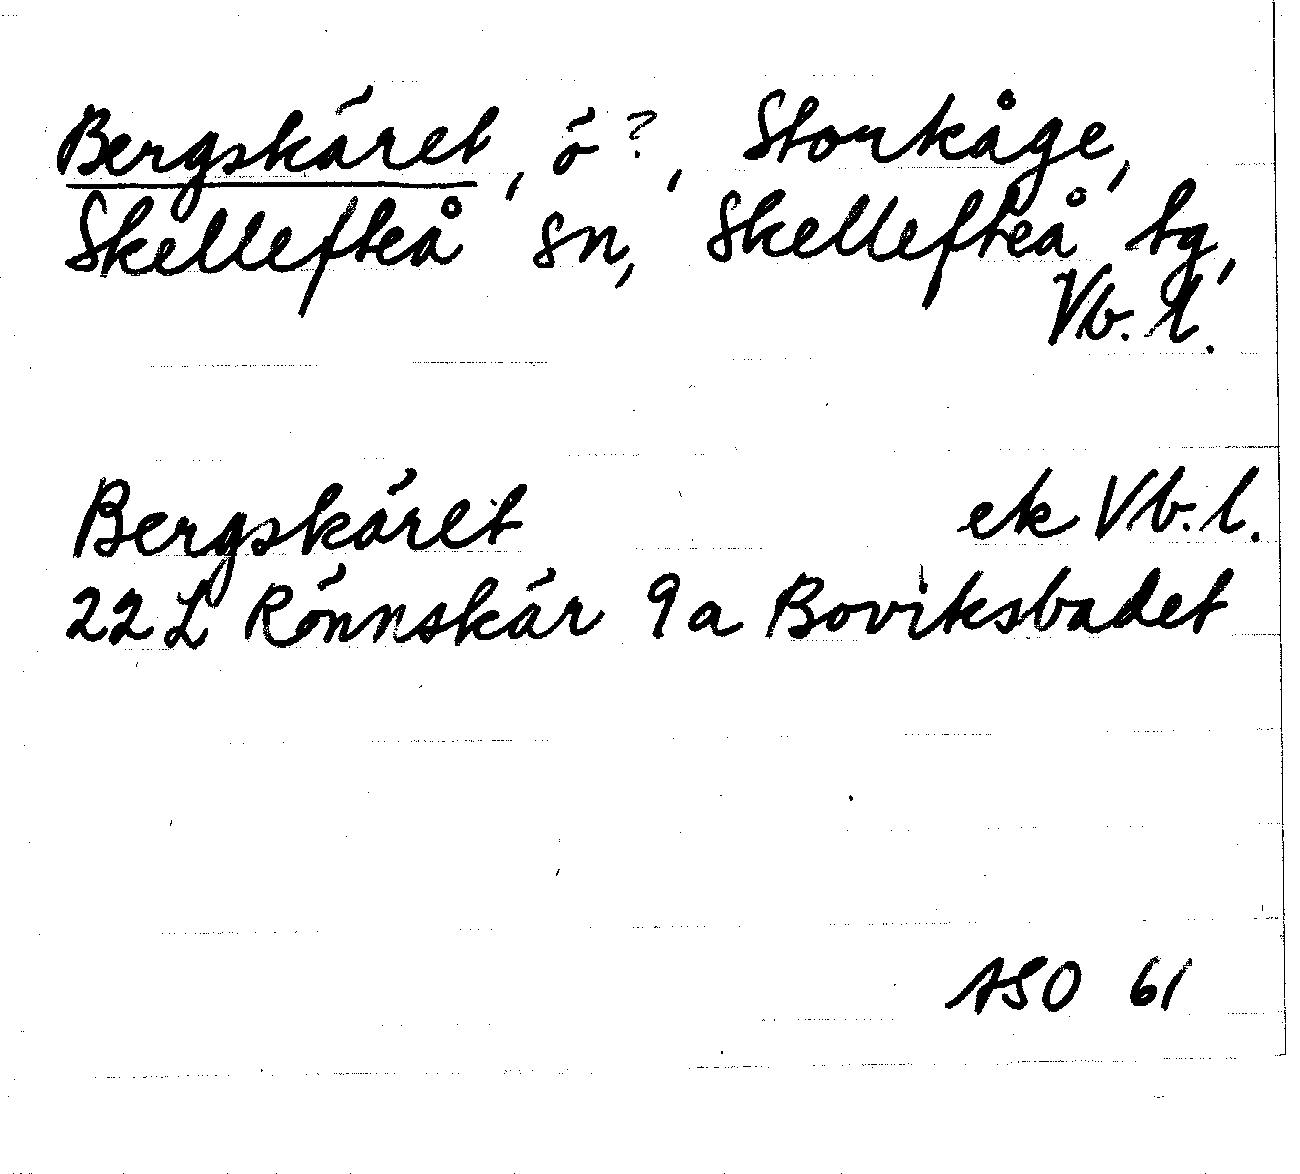 Bergskäret, ö?, Storkåge,
Skellefteå sn, Skellefteå tg,
Vb. l.
Bergskäret ek Vb. l.
22 L Rönnskär 9a Boviksbadet
ASO 61